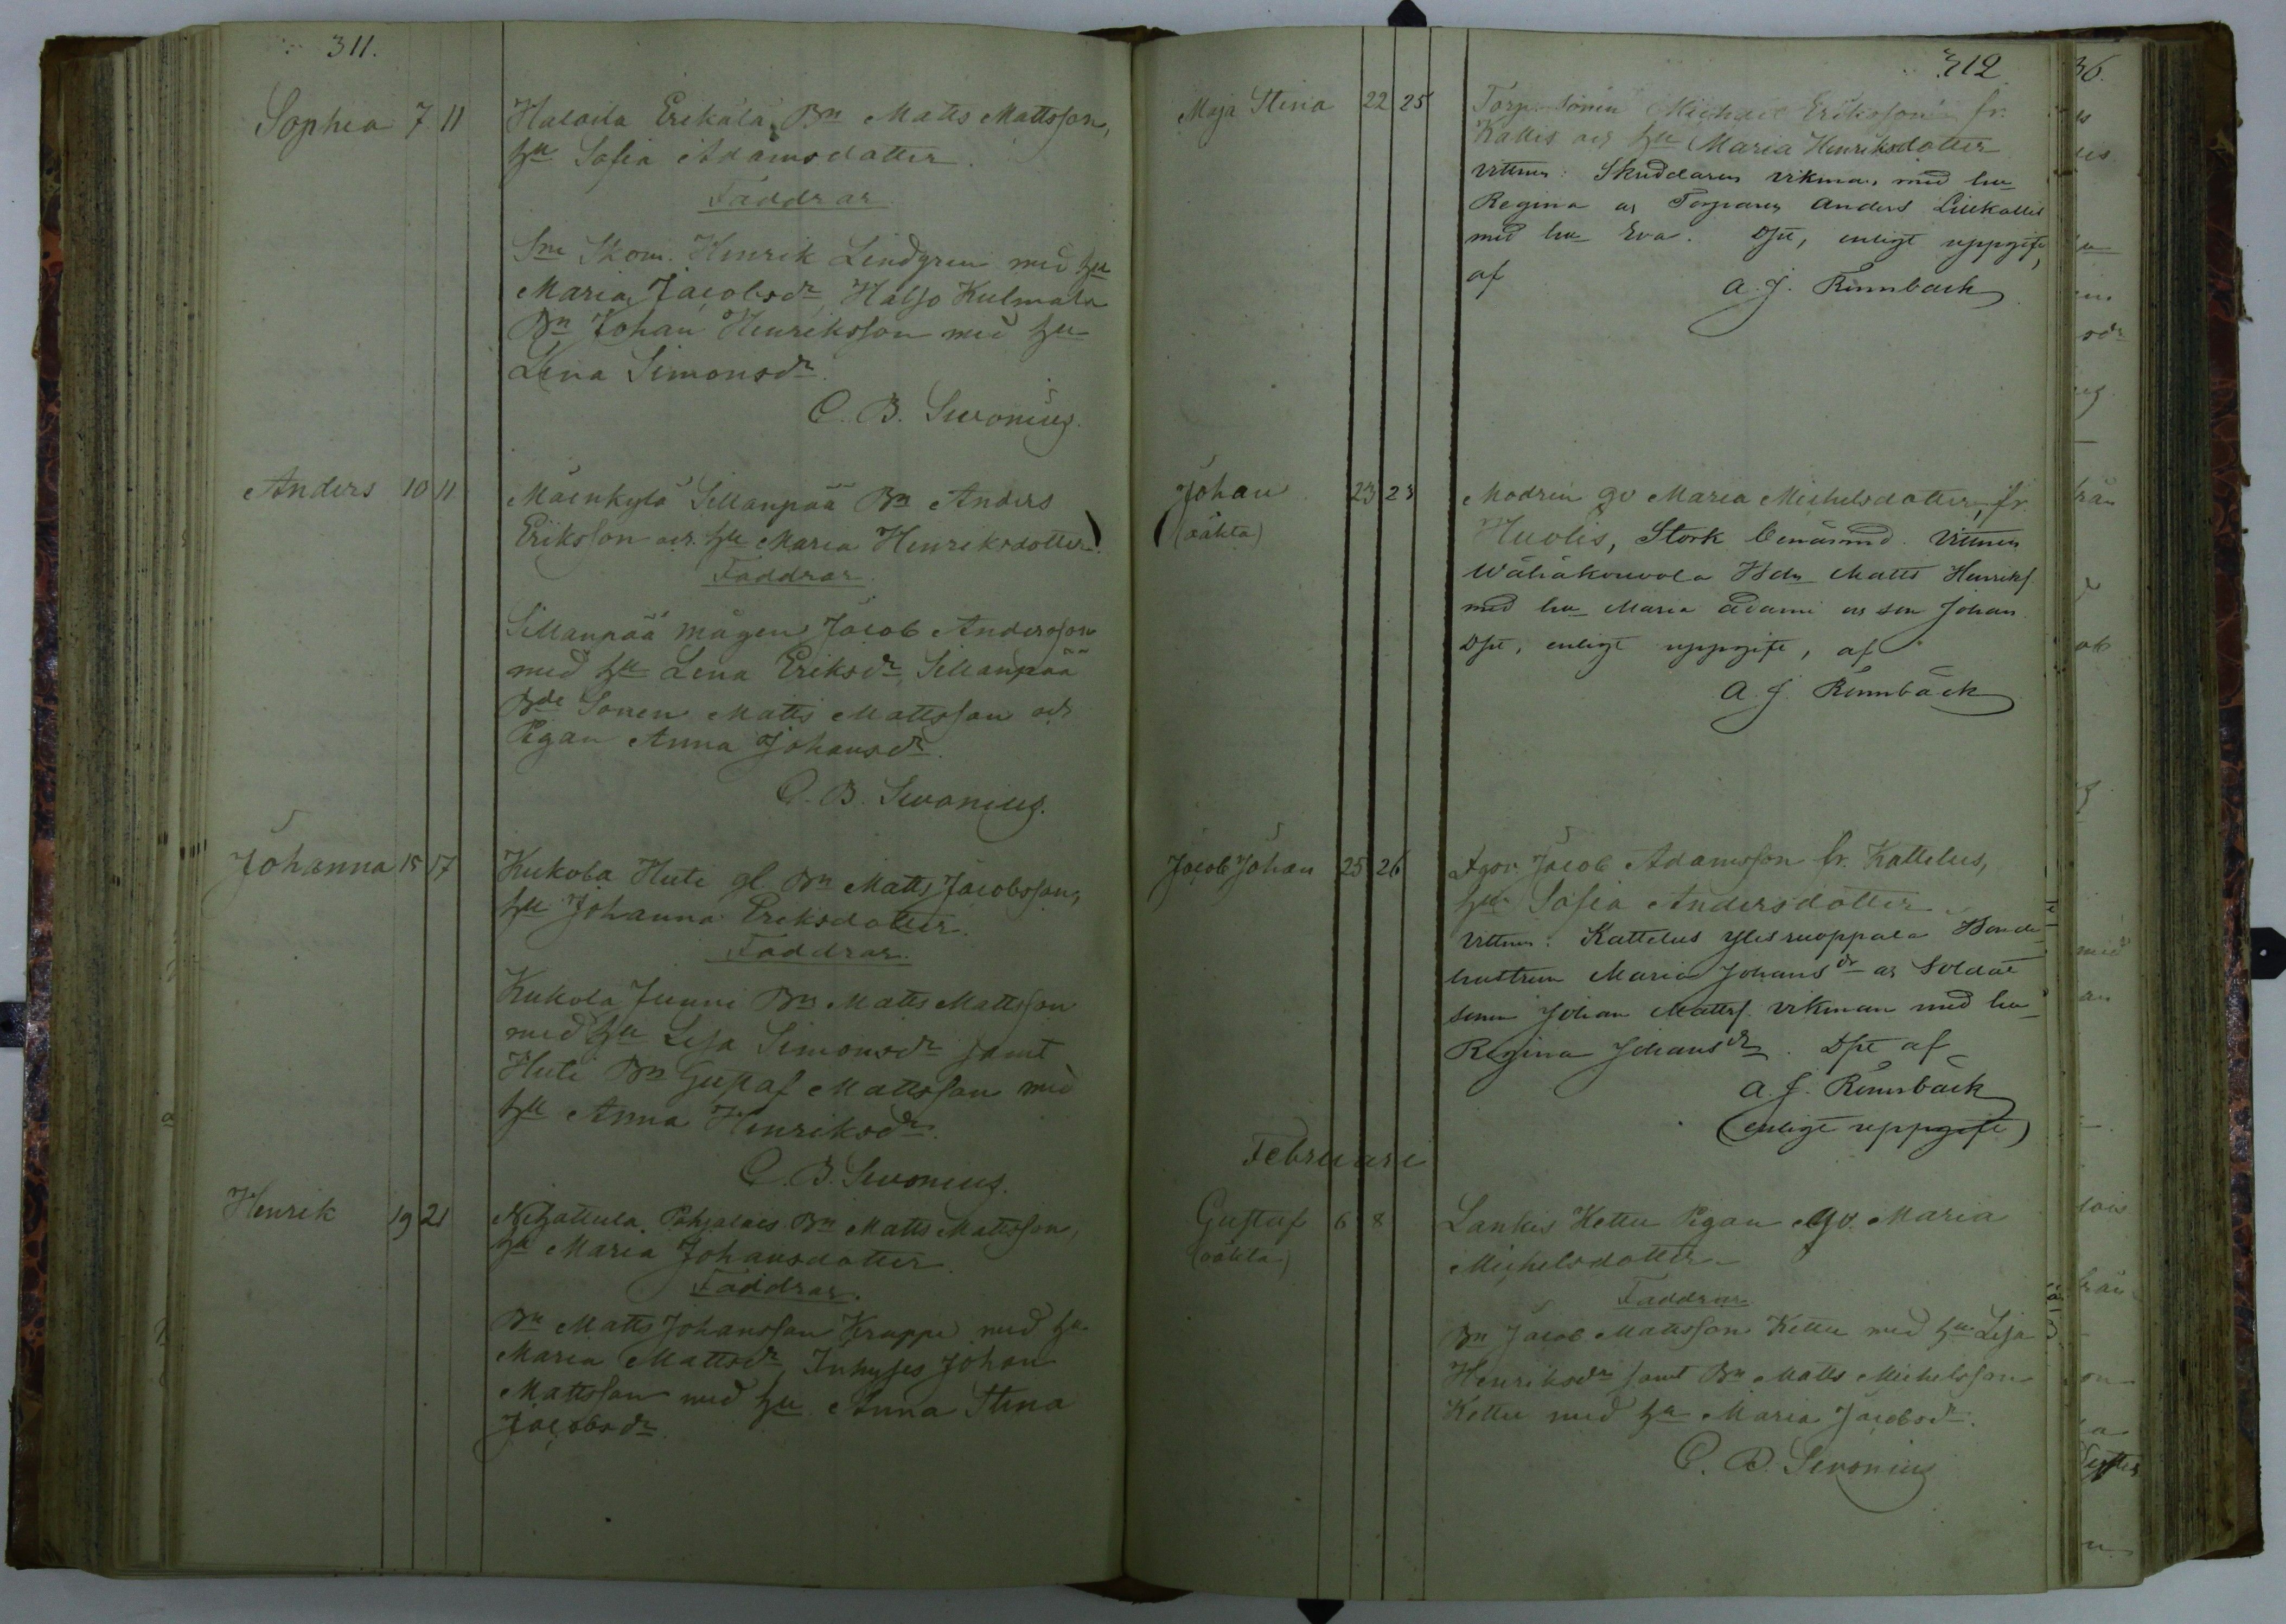 311.
Sophia 7 11 Haloila Erikäla Bn Matts Mattsson,
hu Sofia Adamsdotter.
Faddrar
Sn Skom. Henrik Lindgren med hu
Maria Jacobsdr, Halso Kulmala
Bn Johan Henriksson med hu
Lena Simonsdr.
C. B. Swonius.
Anders 10 11 Mäenkylä Sillanpää Bn Anders
Eriksson och hu Maria Henriksdotter.
Faddrar.
Sillanpää mågen Jacob Andersson
med hu Lena Eriksdr, Sillanpää
Bde Sonen Matts Mattsson och
Pigan Anna Johansdr.
C. B. Swonius.
Johanna 15 17 Kukola Huti gl. Bn Matts Jacobsson,
hu Johanna Eriksdotter.
Faddrar.
Kukola Junni Bn Matts Mattsson
med hu Lisa Simonsdr samt
Huti Bn Gustaf Mattsson med
hu Anna Henriksdr.
C. B. Swonius.
Henrik 19 21 Nihattula Pohjalais Bn Matts Mattsson,
hu Maria Johansdotter.
Faddrar.
Bn Matts Johansson Kruppi med hu
Maria Mattsdr, Inhyses Johan
Mattsson med hu Anna Stina
Jacobsdr.
312
Maja Stina 22 25 Torp. Sonen Michael Eriksson fr.
Kallis och hu Maria Henriksdotter
vittnen: Skräddaren Vikman, med hu
Regina och Torparen Anders Lillkallis
med hu Eva. Dpt, enligt uppgift,
af A. J. Rennbäck
Johan 23 23 Modren qv Maria Michelsdotter, fr.
(oäkta) Huolis, Stork benämnd. Vittnen
Wähäkouvola Bdn Matts Henriks.
med hu Maria Adami och son Johan
Dpt, enligt uppgift, af
A. J. Rennbäck
Jacob Johan 25 26 Agor. Jacob Adamsson fr. Kattelus,
hu Sofia Andersdotter
Vittnen: Kattelus Ylisruoppala Bonde
hustrun Maria Johansdr och Soldat
sonen Johan Mattss. Vikman med hu
Regina Johansdr. Dpt af
A. J. Rennbäck
(enligt uppgift)
Februari
Gustaf 6 8 Lankis Kettu Pigan qv. Maria
(oäkta) Michelsdotter
Faddrar
Bn Jacob Mattsson Kettu med hu Lisa
Henriksdr samt Bn Matts Michelsson
Kettu med hu Maria Jacobsdr.
C. B. Swonius